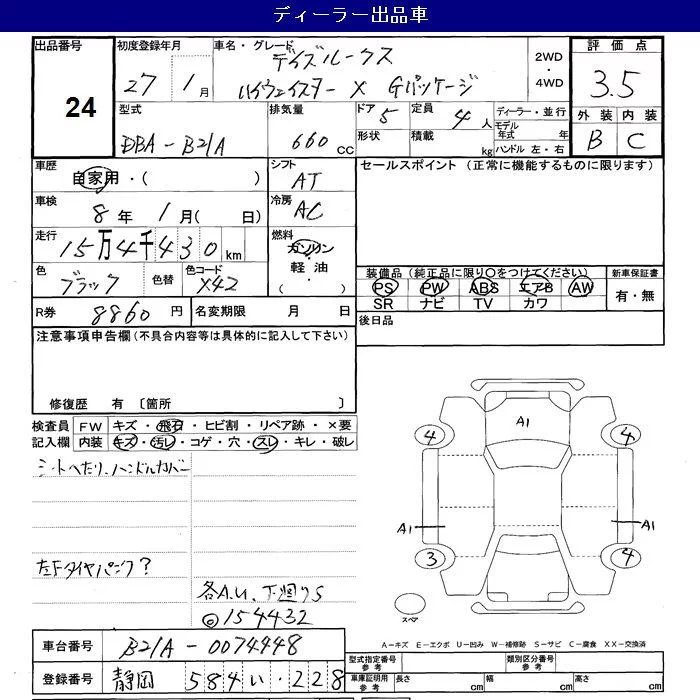 ディーラー出品車
出品番号 24
初度登録年月 27 1月
車名・グレード デイズルークス
ハイウェイスター X Gパッケージ
2WD
4WD
評価点 3.5
外装 内装
B C
型式 DBA-B21A
排気量 660 CC
ドア 5
定員 4 人
ディーラー・並行
形状
積載 kg
モデル年式 年
ハンドル 左・右
車歴 自家用・( )
シフト AT
セールスポイント (正常に機能するものに限ります)
車検 8年 1月( 日)
冷房 AC
走行 15万4千430km
燃料 ガソリン・軽油・( )
色 ブラック
色替
色コード X42
装備品(純正品に限り○をつけてください)
PS PW ABS エアB AW
SR ナビ TV カワ
新車保証書
有・無
R券 8860円
名変期限 月 日
後日品
注意事項申告欄(不具合内容等は具体的に記入して下さい)
修復歴 有 〔箇所 〕
検査員記入欄
FW キズ・飛石・ヒビ割・リペア跡・×要
内装 キズ・汚レ・コゲ・穴・スレ・キレ・破レ
シートへたり、ハンドルカバー
左Fタイヤパンク?
各A.U、下廻りS
◎154432
A1
4 4
A1 A1
3 4
スペア
A-キズ E-エクボ U-凹み W-補修跡 S-サビ C-腐食 XX-交換済
車台番号 B21A-0074448
登録番号 静岡 584 い 228
型式指定番号 参考
類別区分番号 参考
車庫証明用 参考 長さ cm 幅 cm 高さ cm